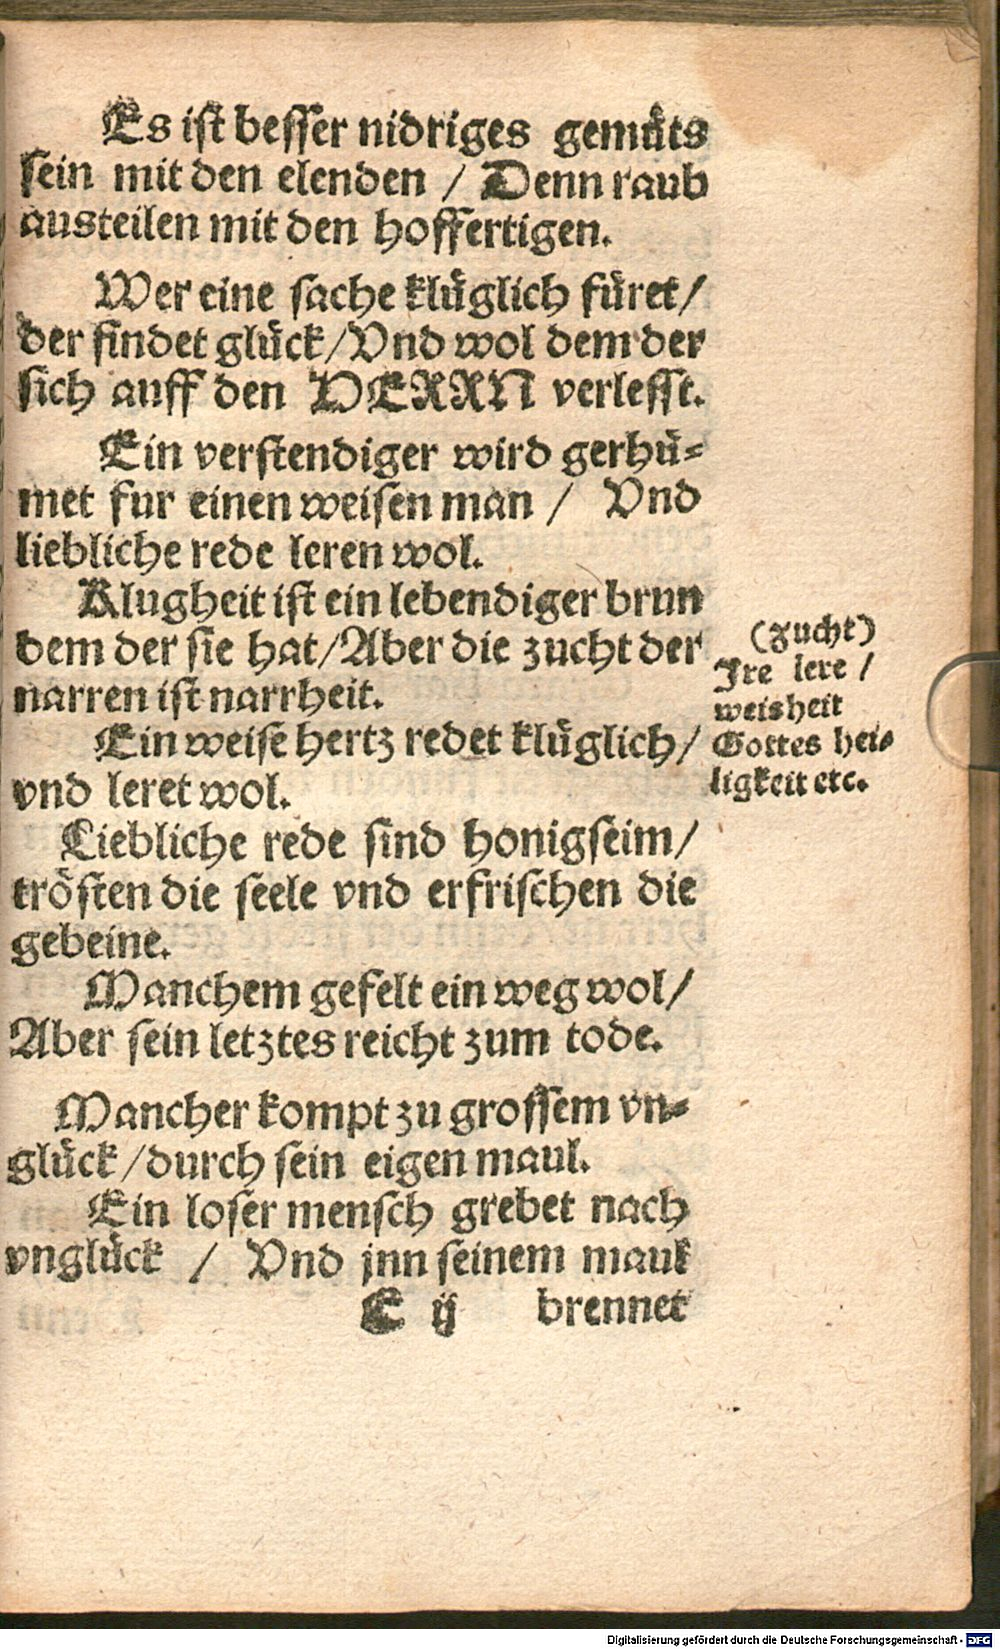 Es ist besser nidriges gemuͤts
sein mit den elenden / Denn raub
austeilen mit den hoffertigen.
Wer eine sache kluͤglich fuͤret /
der findet gluͤck / Vnd wol dem der
sich auff den HERRN verlesst.
Ein verstendiger wird gerhuͤ⸗
met fur einen weisen man / Vnd
liebliche rede leren wol.
Klugheit ist ein lebendiger brun
dem der sie hat / Aber die zucht der
narren ist narrheit.
Ein weise hertz redet kluͤglich /
vnd leret wol.
Liebliche rede sind honigseim /
troͤsten die seele vnd erfrischen die
gebeine.
Manchem gefelt ein weg wol /
Aber sein letztes reicht zum tode.
Mancher kompt zu grossem vn⸗
gluͤck / durch sein eigen maul.
Ein loser mensch grebet nach
vngluͤck / Vnd jnn seinem maul
C ij brennet
(zucht)
Ire lere /
weisheit
Gottes hei⸗
ligkeit etc.
Digitalisierung gefördert durch die Deutsche Forschungsgemeinschaft - DFG